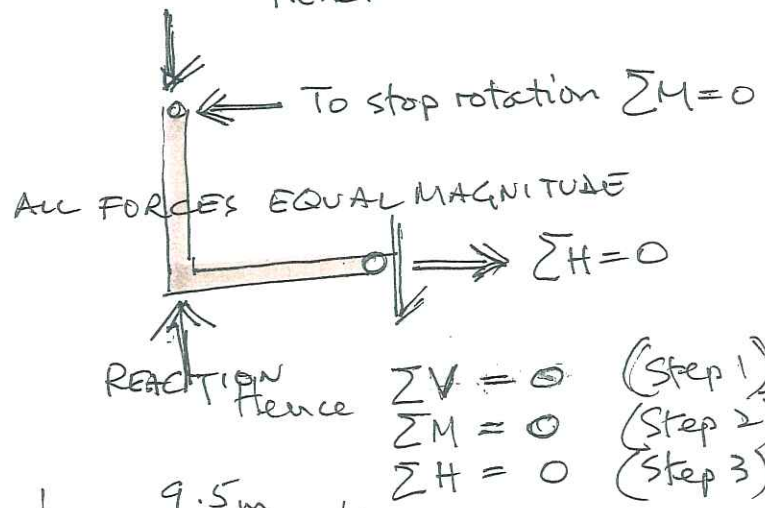 To stop rotation ΣM = 0
ALL FORCES EQUAL MAGNITUDE
ΣH = 0
REACTION
Hence ΣV = 0 (Step 1)
ΣM = 0 (Step 2
ΣH = 0 (Step 3)
9.5m